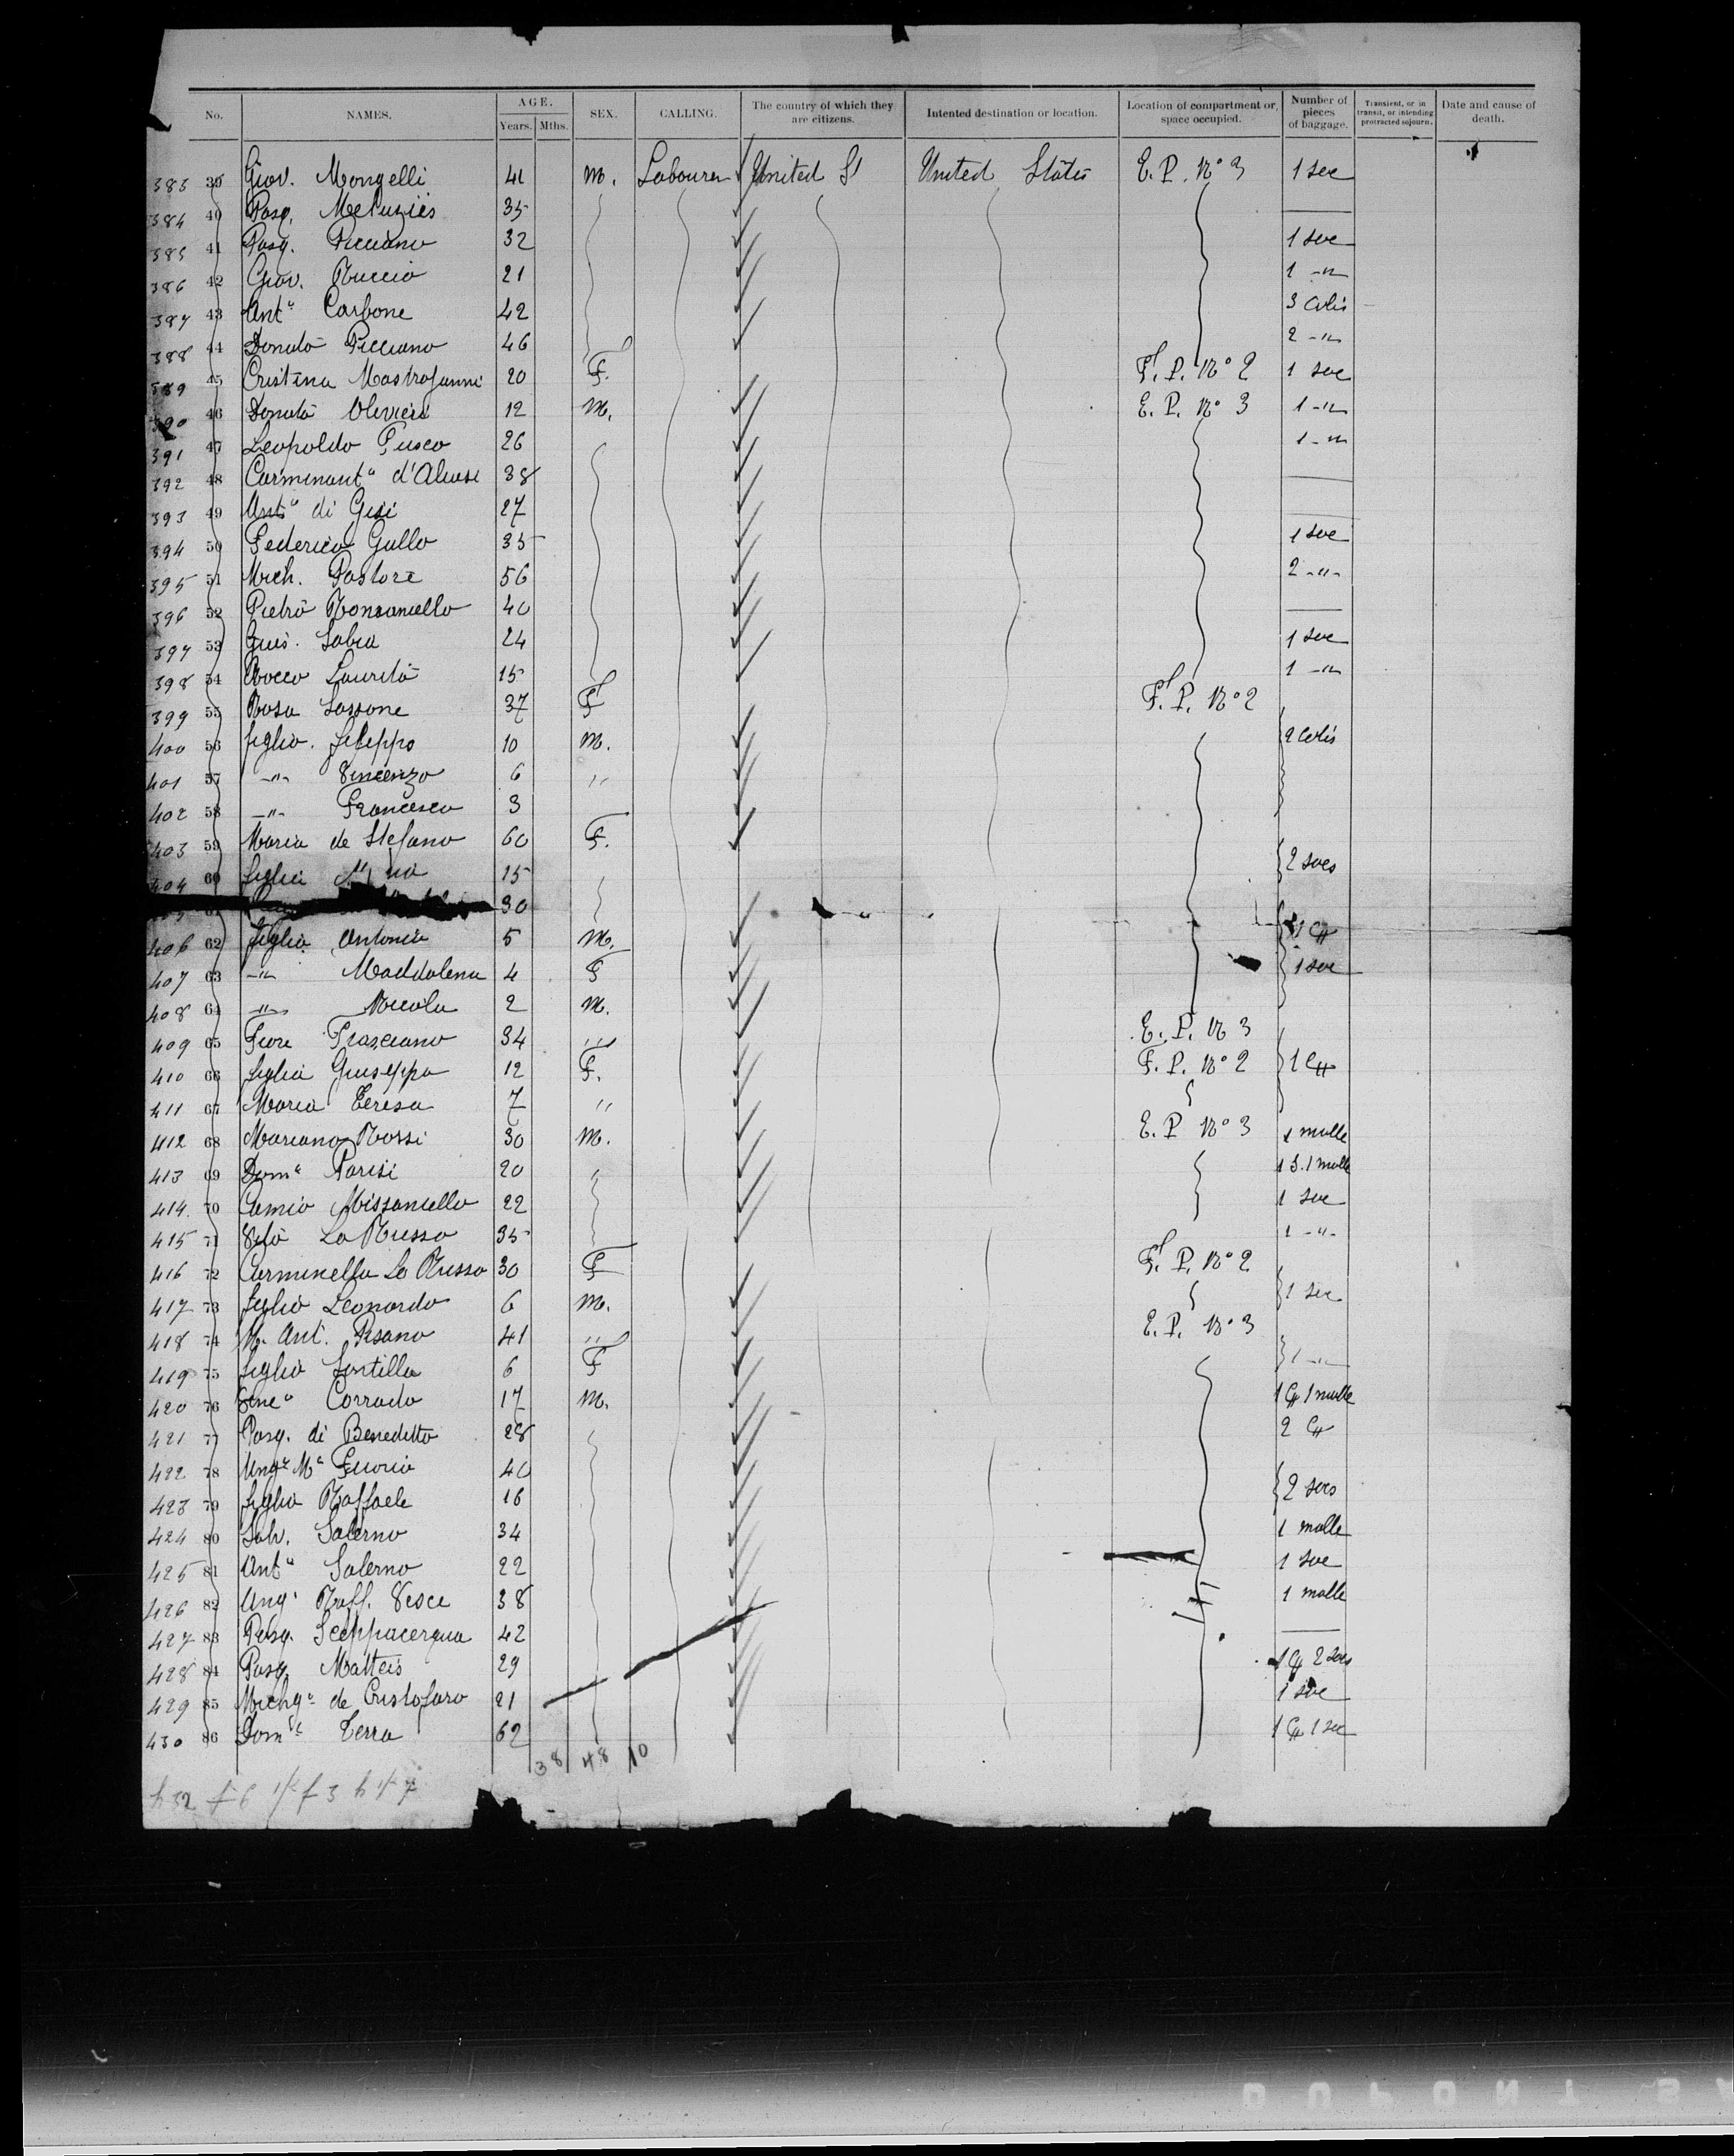 No. NAMES. AGE. Years. Mths. SEX. CALLING. The country of which they are citizens. Intented destination or location. Location of compartment or space occupied. Number of pieces of baggage. Transient, or in transit, or intending protracted sojourn. Date and cause of death.
383 39 Giov. Mongelli 41 m. Labourer United S United States E. P. No 3 1 sac
384 40 Pasq. 35
385 41 Pasq. Picciano 32 1 sac
386 42 Giov. Ruccio 21 1 -"-
387 43 Anto Carbone 42 3 Colis
388 44 Donato Picciano 46 2 -"-
389 45 Cristina Mastrojanni 20 F. F. P. No 2 1 sac
390 46 Donato Olivieri 12 m. E. P. No 3 1 -"-
391 47 Leopoldo Fusco 26 1 -"-
392 48 38
393 49 Anto di 27
394 50 Federico Gallo 35 1 sac
395 51 Mich. Pastore 56 2 -"-
396 52 Pietro 40
397 53 Gius. Sabia 24 1 sac
398 54 Rocco Laurita 15 1 -"-
399 55 Rosa Sassone 37 F F. P. No 2
400 56 figlio. 10 m. 2 Colis
401 57 -"- Vincenzo 6 "
402 58 -"- Francesco 3
403 59 Maria de Stefano 60 F.
404 60 figlia 15 2 sacs
30
406 62 figlio Antonio 5 m.
407 63 -"- Maddalena 4 F 1 sac
408 64 -"- Nicola 2 m.
409 65 Fiore Frasciano 34 " E. P. N 3
410 66 figlia Giuseppa 12 F. F. P. No 2
411 67 Maria Teresa 7 "
412 68 Mariano Rossi 30 m. E. P No 3 1 malle
413 69 Parisi 20 1 S. 1 malle
414 70 Missaniello 22 1 sac
415 71 Vito La Russo 35 1 -"-
416 72 Carminella La Russo 30 F F. P. No 2
417 73 figlio Leonardo 6 m. 1 sac
418 74 M. Ant. Pisano 41 " E. P. No 3
419 75 6 F 1 -"-
420 76 Corrado 17 m. 1 malle
421 77 Pasq. di Benedetto 28 2
422 78 40
423 79 figlio Raffaele 16 2 sacs
424 80 Salv. Salerno 34 1 malle
425 81 Anto Salerno 22 1 sac
426 82 Ang. Raff. Pesce 38 1 malle
427 83 Pasq. Sceppacerqua 42
428 84 Pasq. Matteis 29 2 sacs
429 85 de Cristofaro 21 1 sac
430 86 Terra 62 1 sac
38 48 10